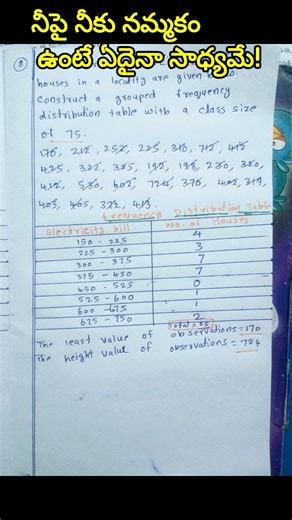 నీపై నీకు నమ్మకం
ఉంటే ఏదైనా సాధ్యమే!
houses in a locality are given
construct a grouped frequency
distribution table with a class size
of 75.
170, 212, 252, 225, 310, 712, 412
425, 322, 325, 192, 198, 230, 320,
412, 530, 602, 724, 370, 402, 317,
403, 405, 372, 413.
Frequency Distribution Table
Electricity bill No. of Houses
150 - 225 4
225 - 300 3
300 - 375 7
375 - 450 7
450 - 525 0
525 - 600 1
600 - 675 1
675 - 750 2
Total = 25
The least value of observations = 170
the height value of observations = 724